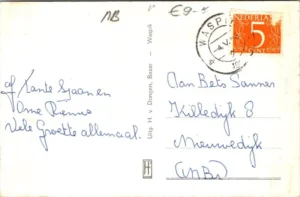 NB
€9-
WASPIK
NEDERLAND
5
CENT
of Tante Sjaan en
Oome Rennie
Vele Groetjes allemaal.
Uitg. H. v. Dongen, Bazar - Waspik
H
Aan Bets Sanner
Killedijk 8
Nieuwedijk
(N.Br.)